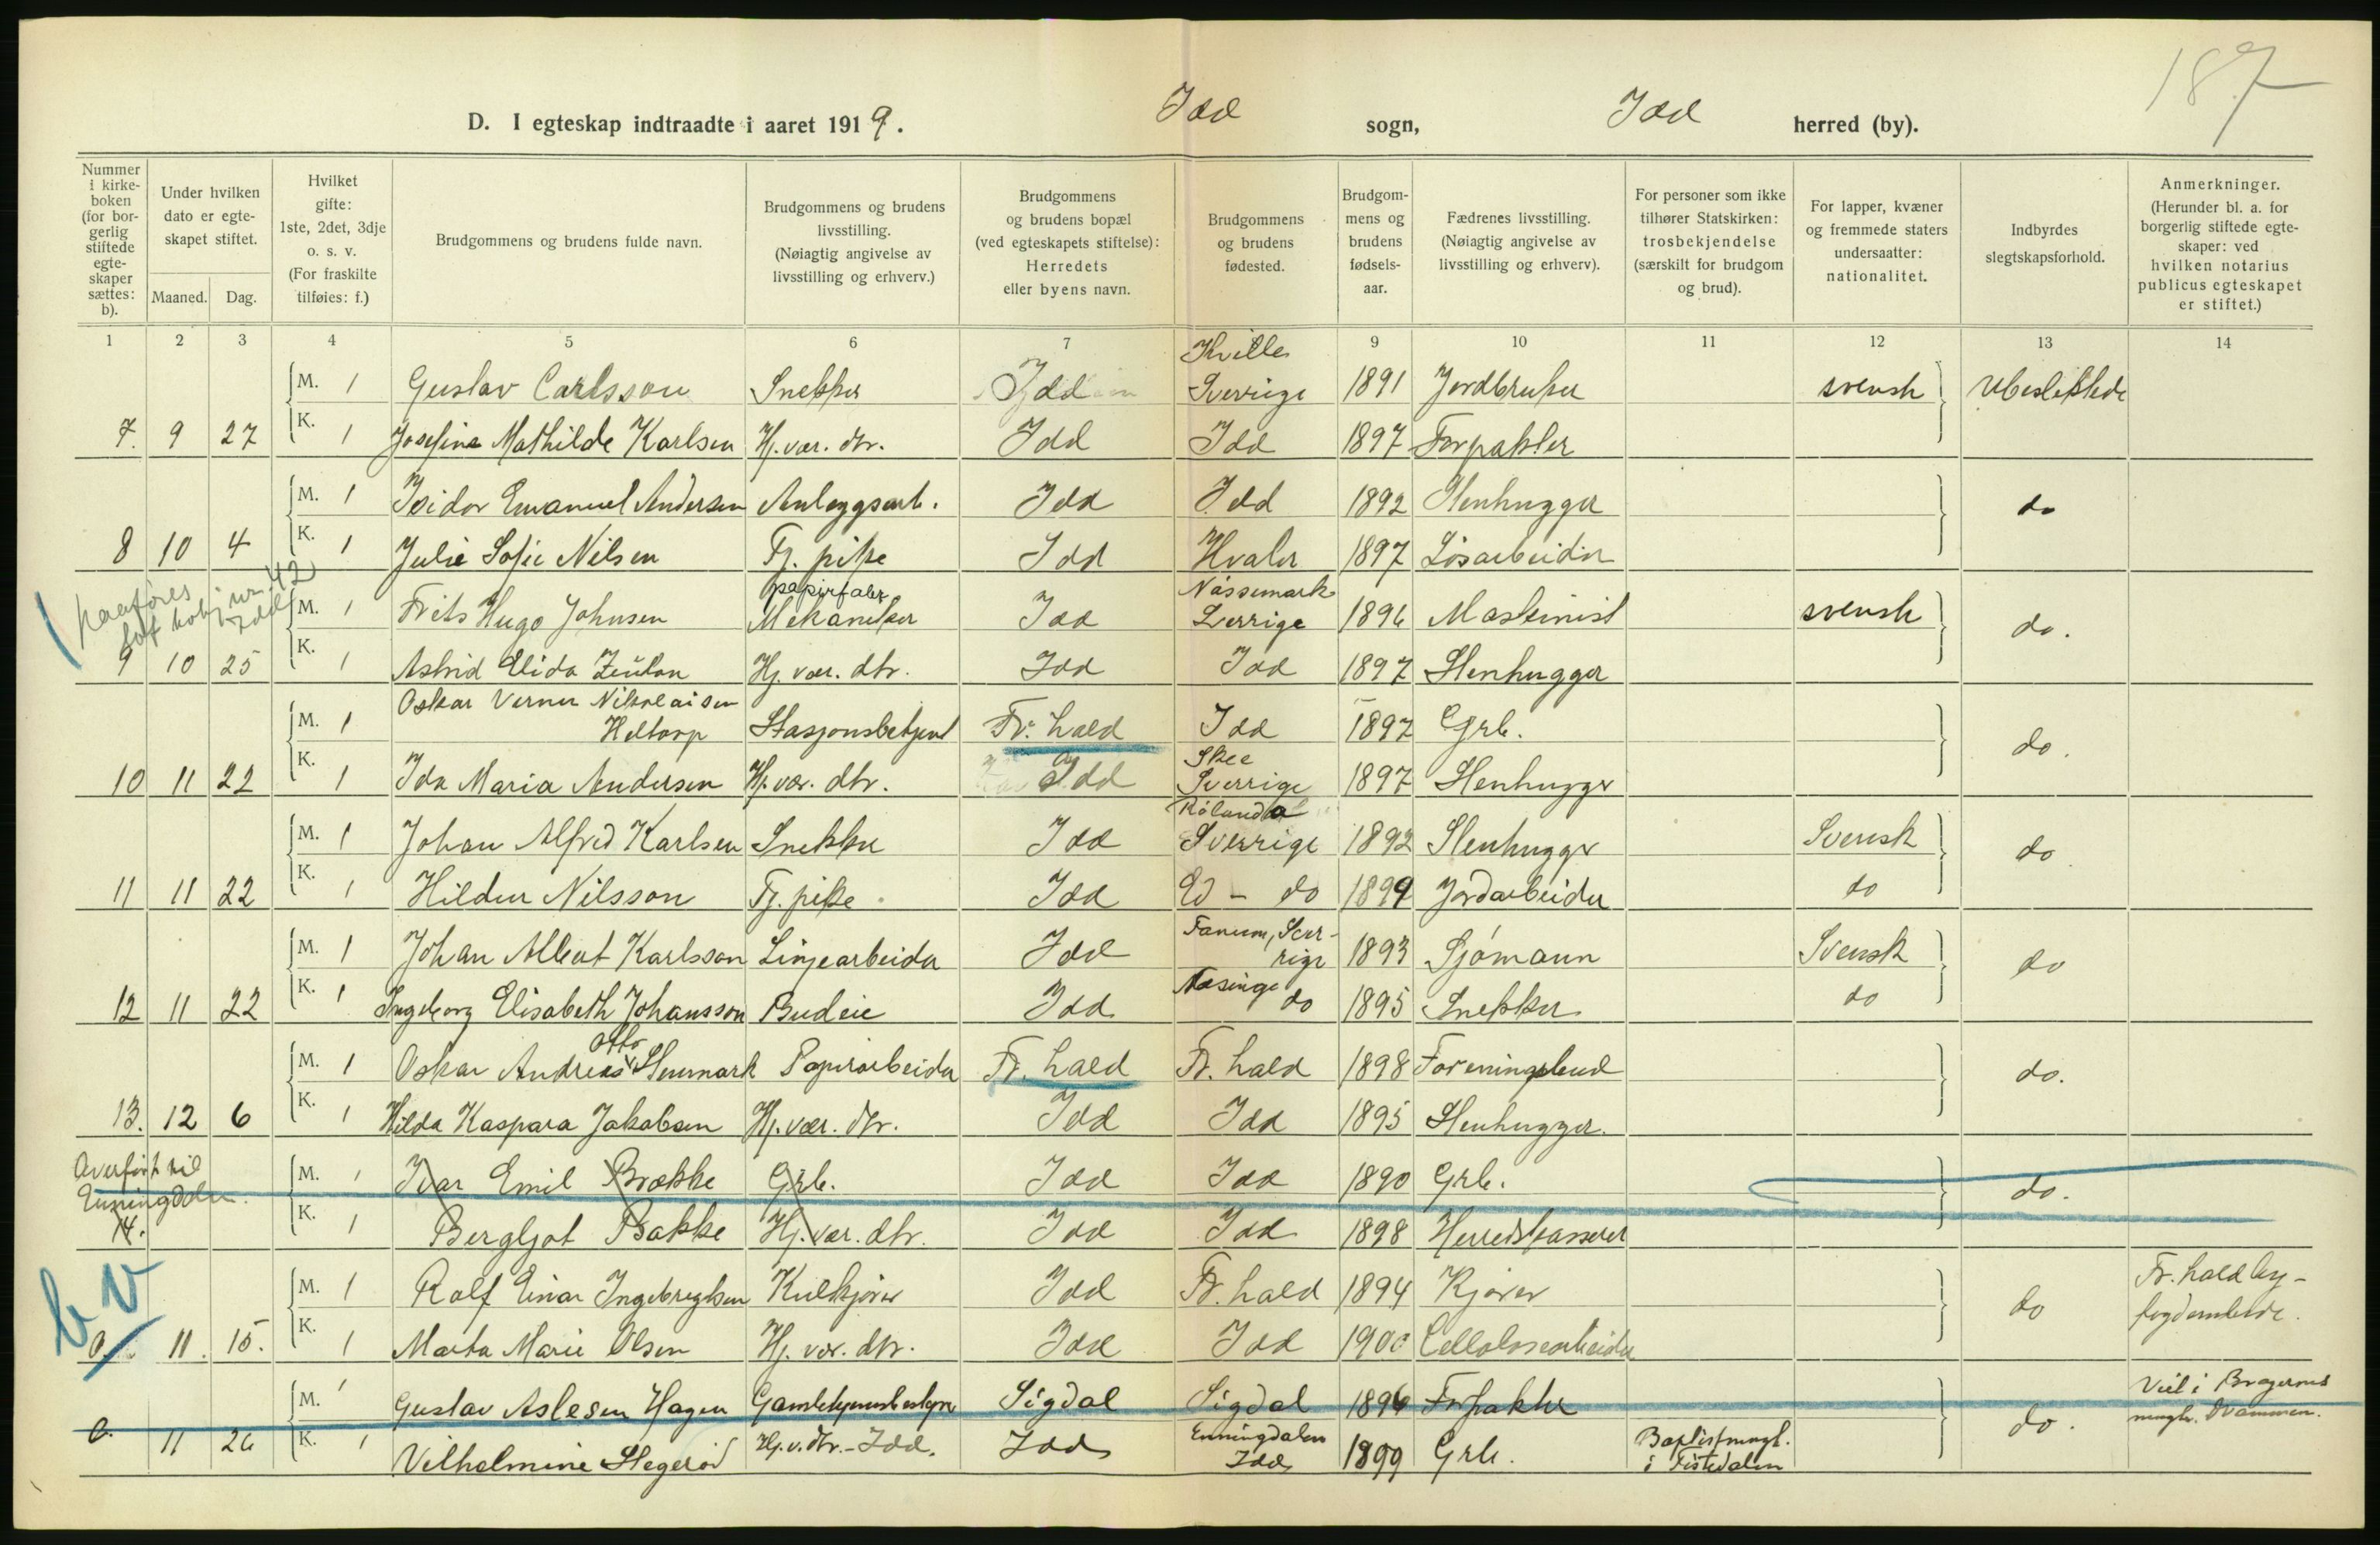 187
D. I egteskap indtraadte i aaret 1919. Idd sogn, Idd herred (by).
Nummer i kirkeboken (for borgerlig stiftede egteskaper sættes: b).
Under hvilken dato er egteskapet stiftet.
Maaned. Dag.
Hvilket gifte: 1ste, 2det, 3dje o. s. v. (For fraskilte tilføies: f.)
Brudgommens og brudens fulde navn.
Brudgommens og brudens livsstilling. (Nøiagtig angivelse av livsstilling og erhverv.)
Brudgommens og brudens bopæl (ved egteskapets stiftelse): Herredets eller byens navn.
Brudgommens og brudens fødested.
Brudgommens og brudens fødselsaar.
Fædrenes livsstilling. (Nøiagtig angivelse av livsstilling og erhverv).
For personer som ikke tilhører Statskirken: trosbekjendelse (særskilt for brudgom og brud).
For lapper, kvæner og fremmede staters undersaatter: nationalitet.
Indbyrdes slegtskapsforhold.
Anmerkninger. (Herunder bl. a. for borgerlig stiftede egteskaper: ved hvilken notarius publicus egteskapet er stiftet.)
1 2 3 4 5 6 7 9 10 11 12 13 14
M. 1 Gustav Carlsson Snekker Idd Kville Sverrige 1891 Jordbruker svensk Ubeslektede
7. 9 27 K. 1 Josefine Mathilde Karlsen Hj. vær. dtr. Idd Idd 1897 Forpakter
M. 1 Isidor Emanuel Andersen Anlægsarb. Idd Idd 1892 Stenhugger do
8 10 4 K. 1 Julie Sofie Nilsen Tj. pike Idd Hvaler 1897 Løsarbeider
M. 1 Frits Hugo Johnsen papirfabr. Mekaniker Idd Nössemark Sverrige 1896 Maskinist svensk do.
9 10 25 K. 1 Astrid Elida Hj. vær. dtr. Idd Idd 1897 Stenhugger
M. 1 Oskar Verner Nikolaisen Heltorp Stasjonsbetjent Fr. hald Idd 1897 Grb. do.
10 11 22 K. 1 Ida Maria Andersen Hj. vær. dtr. Idd Skee Sverrige 1897 Stenhugger
M. 1 Johan Alfred Karlsen Snekker Idd Rölanda Sverrige 1892 Stenhugger Svensk do
11 11 22 K. 1 Hildur Nilsson Tj. pike Idd Ed - do 1899 Jordarbeider do
M. 1 Johan Albert Karlsson Linjearbeider Idd Tanum, Sverrige 1893 Sjømann Svensk do
12 11 22 K. 1 Ingeborg Elisabeth Johansson Budeie Idd Næsinge do 1895 Snekker do
M. 1 Oskar Andreas Otto Stenmark Papirarbeider Fr. hald Fr. hald 1898 Foreningsbud do.
13. 12 6 K. 1 Hilda Kaspara Jakobsen Hj. vær. dtr. Idd Idd 1895 Stenhugger.
Overført til Enningdalen.
M. 1 Ivar Emil Brække Grb. Idd Idd 1890 Grb. do.
14. K. 1 Bergljot Bakke Hj. vær. dtr. Idd Idd 1898 Herredskasserer
b v
M. 1 Rolf Einar Ingebregtsen Kulkjører Idd Fr. hald 1894 Kjører do Fr. hald by-
11. 15. K. 1 Marta Marie Olsen Hj. vær. dtr. Idd Idd 1900 Cellolosearbeider fogdembede.
M. 1 Gustav Aslesen Hagen Gamlehjemsbestyrer Sigdal Sigdal 1896 Forpakter do. Viet i Bragernes
11 26 K. 1 Vilhelmine Stegerød Hj. v. dtr. - Idd. Idd Enningdalen Idd 1899 Grb. Baptistmengh. i Tistedalen mengh. Drammen.